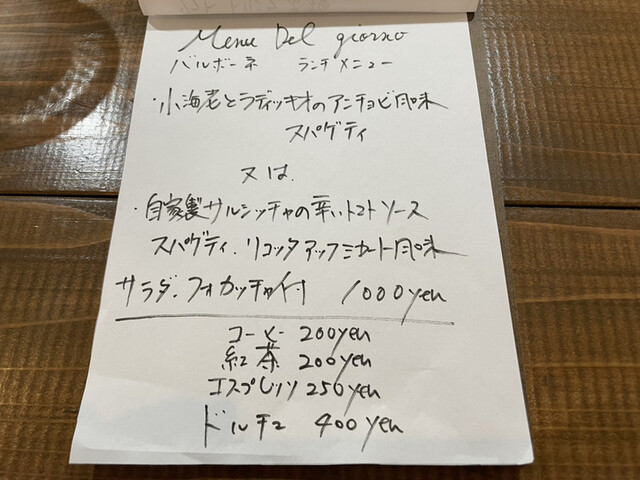 Menu Del giorno
バルボーネ ランチメニュー
・小海老とラディッキオのアンチョビ風味
スパゲティ
又は、
・自家製サルシッチャの辛いトマトソース
スパゲティ、リコッタアッフミカート風味
サラダ、フォカッチャ付 1000yen
コーヒー 200yen
紅茶 200yen
エスプレッソ 250yen
ドルチェ 400yen